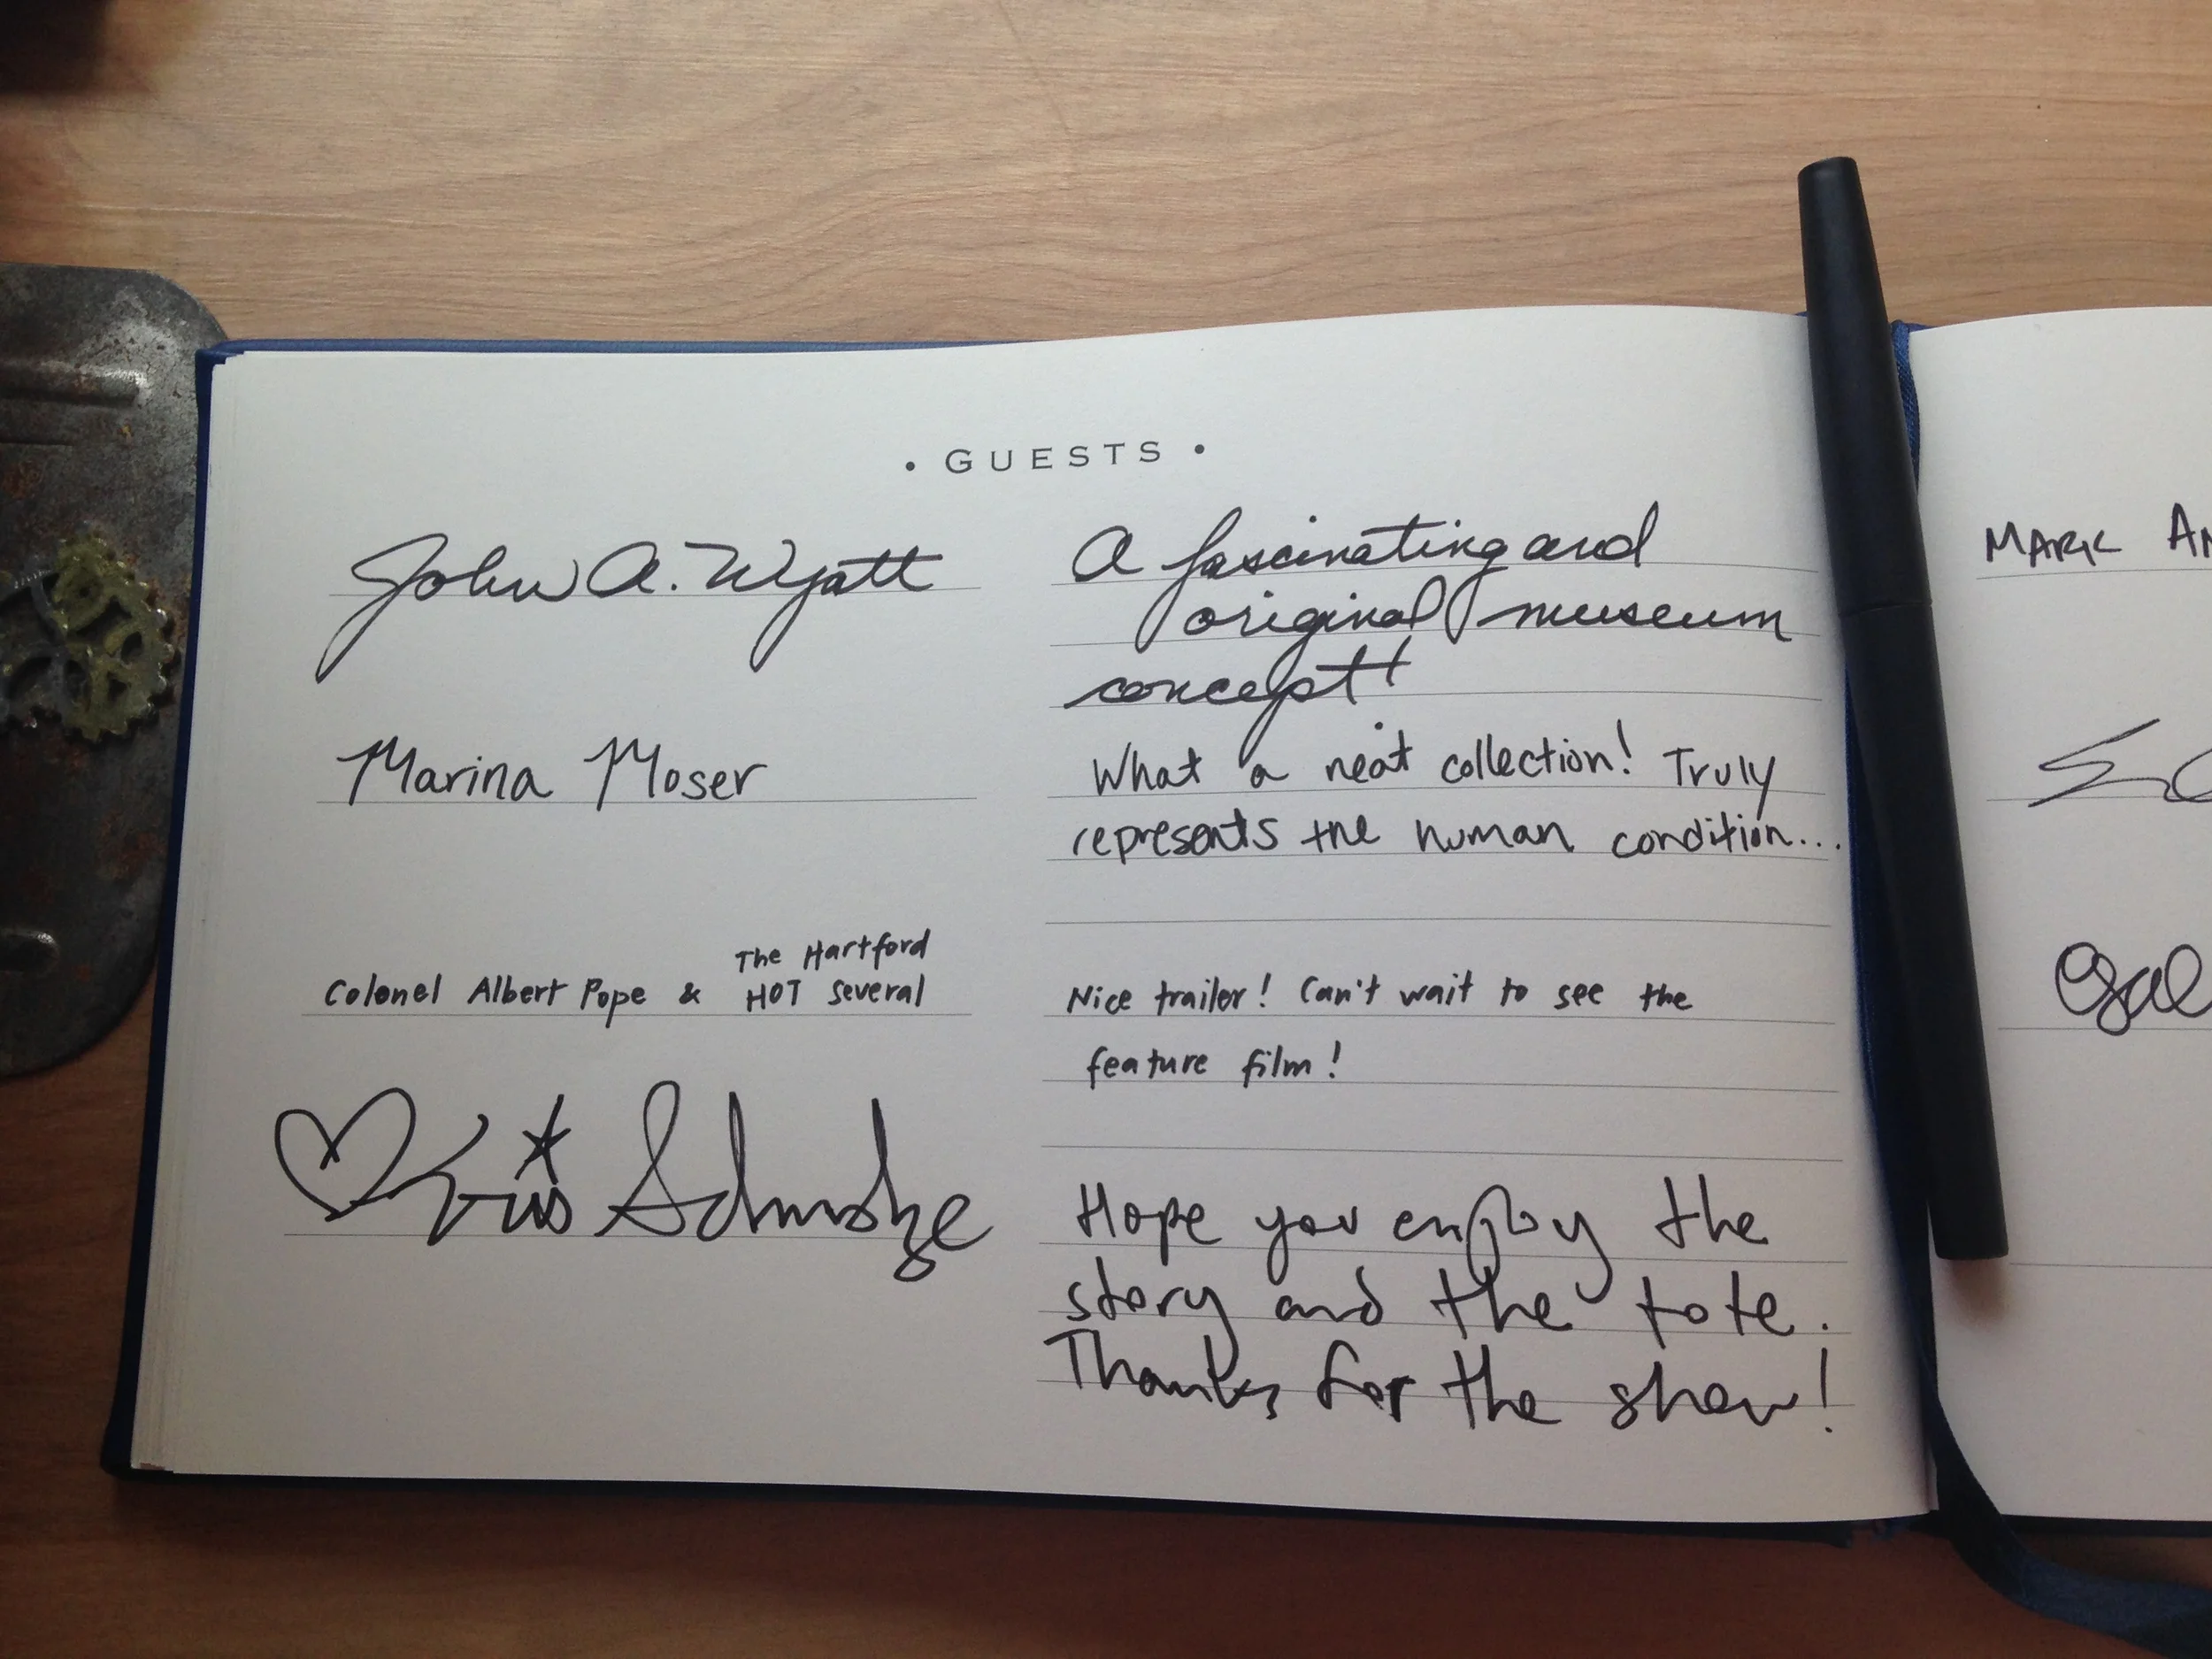 • GUESTS •
John A. Wyatt
A fascinating and
original museum
concept!
Marina Moser
What a neat collection! Truly
represents the human condition...
The Hartford
Colonel Albert Pope & HOT Several
Nice trailer! Can't wait to see the
feature film!
Kris
Hope you enjoy the
story and the tote.
Thanks for the show!
MARK